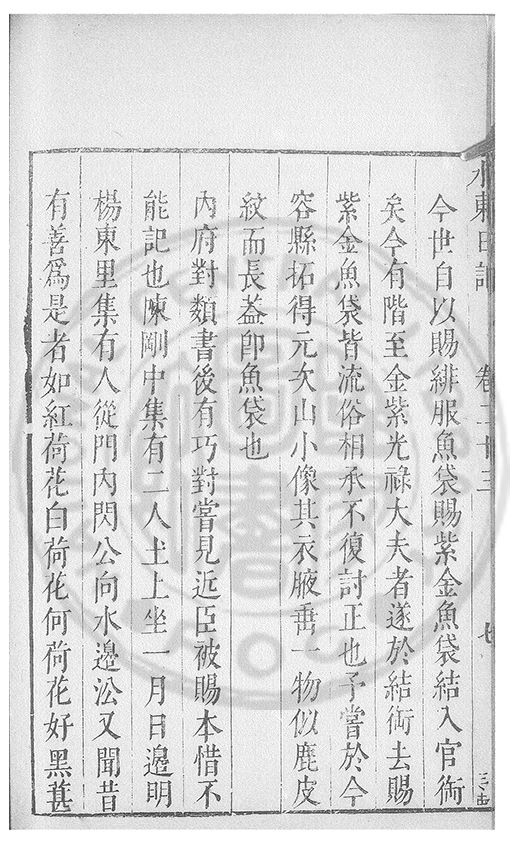 水東日記 卷二十三 七
今世自以賜緋服魚袋賜紫金魚袋結入官銜
矣今有階至金紫光祿大夫者遂於結銜去賜
紫金魚袋皆流俗相承不復討正也予嘗於今
容縣拓得元次山小像其衣腋垂一物似鹿皮
紋而長葢卽魚袋也
內府對類書後有巧對嘗見近臣被賜本惜不
能記也陳剛中集有二人土上坐一月日邊明
楊東里集有人從門內閃公向水邊㳂又聞昔
有善爲是者如紅荷花白荷花何荷花好黑葚